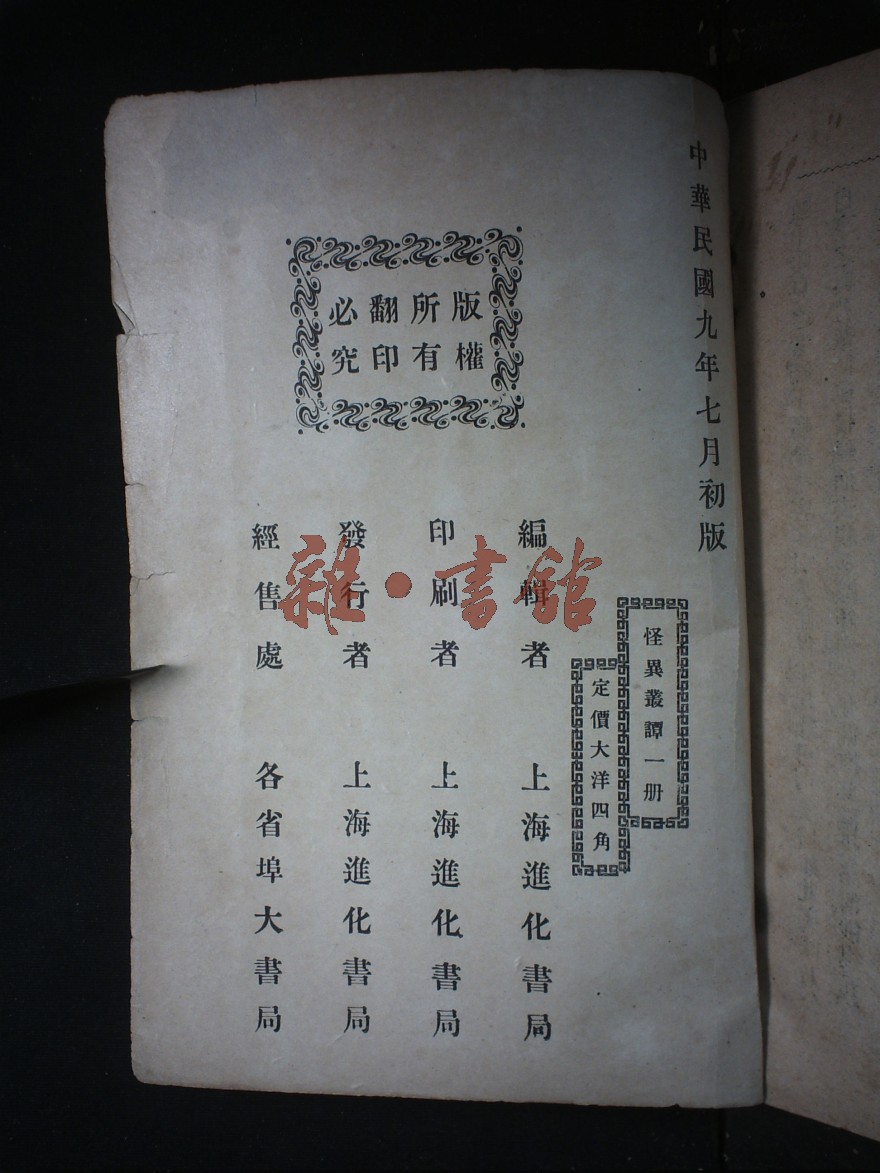 中華民國九年七月初版
怪異叢譚一册
定價大洋四角
版權
所有
翻印
必究
編輯者 上海進化書局
印刷者 上海進化書局
發行者 上海進化書局
經售處 各省埠大書局
雜·書館